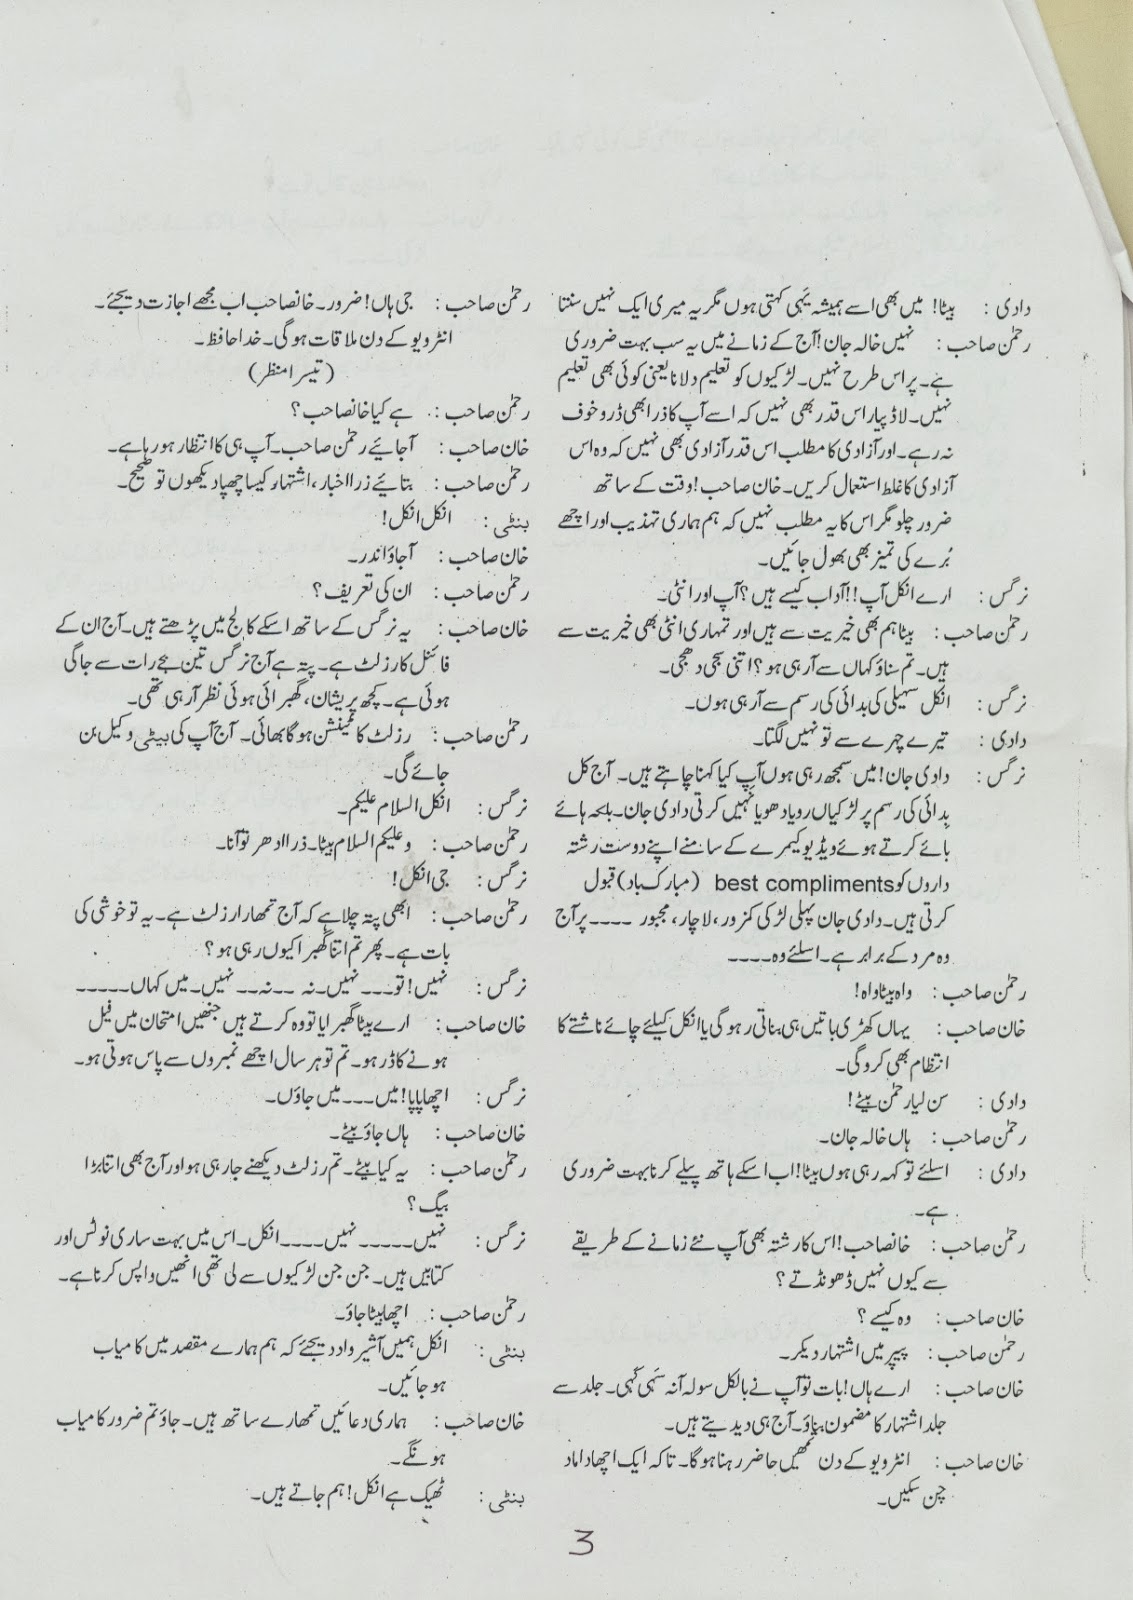 دادی : بیٹا! میں بھی اسے ہمیشہ یہی کہتی ہوں مگر یہ میری ایک نہیں سنتا
رحمٰن صاحب : نہیں خالہ جان! آج کے زمانے میں یہ سب بہت ضروری
ہے۔ پر اس طرح نہیں۔ لڑکیوں کو تعلیم دلانا یعنی کوئی بھی تعلیم
نہیں۔ لاڈ پیار اس قدر بھی نہیں کہ اسے آپ کا ذرا بھی ڈر و خوف
نہ رہے۔ اور آزادی کا مطلب اس قدر آزادی بھی نہیں کہ وہ اس
آزادی کا غلط استعمال کریں۔ خان صاحب! وقت کے ساتھ
ضرور چلو مگر اس کا یہ مطلب نہیں کہ ہم ہماری تہذیب اور اچھے
بُرے کی تمیز بھی بھول جائیں۔
نرگس : ارے انکل آپ!! آداب کیسے ہیں؟ آپ اور انٹی۔
رحمٰن صاحب : بیٹا ہم بھی خیریت سے ہیں اور تمہاری انٹی بھی خیریت سے
ہیں۔ تم سناؤ کہاں سے آرہی ہو؟ اتنی سجی دھجی۔
نرگس : انکل سہیلی کی بدائی کی رسم سے آرہی ہوں۔
دادی : تیرے چہرے سے تو نہیں لگتا۔
نرگس : دادی جان! میں سمجھ رہی ہوں آپ کیا کہنا چاہتے ہیں۔ آج کل
بِدائی کی رسم پر لڑکیاں رویا دھویا نہیں کرتی دادی جان۔ بلکہ ہائے
بائے کرتے ہوئے ویڈیو کیمرے کے سامنے اپنے دوست رشتہ
داروں کو best compliments (مبارک باد) قبول
کرتی ہیں۔ دادی جان پہلی لڑکی کمزور، لاچار، مجبور ۔۔۔۔ پر آج
وہ مرد کے برابر ہے۔ اسلئے وہ۔۔۔۔
رحمٰن صاحب : واہ بیٹا واہ!
خان صاحب : یہاں کھڑی باتیں ہی بناتی رہوگی یا انکل کیلئے چائے ناشتے کا
انتظام بھی کروگی۔
دادی : سن لیا رحمٰن بیٹے!
رحمٰن صاحب : ہاں خالہ جان۔
دادی : اسلئے تو کہہ رہی ہوں بیٹا! اب اسکے ہاتھ پیلے کرنا بہت ضروری
ہے۔
رحمٰن صاحب : خانصاحب! اس کا رشتہ بھی آپ نئے زمانے کے طریقے
سے کیوں نہیں ڈھونڈتے؟
خان صاحب : وہ کیسے؟
رحمٰن صاحب : پیپر میں اشتہار دیکر۔
خان صاحب : ارے ہاں! بات تو آپ نے بالکل سولہ آنہ سَہی کَہی۔ جلد سے
جلد اشتہار کا مضمون بناؤ۔ آج ہی دیدیتے ہیں۔
خان صاحب : انٹرویو کے دن تمھیں حاضر رہنا ہوگا۔ تاکہ ایک اچھا داماد
چن سکیں۔
رحمٰن صاحب : جی ہاں! ضرور۔ خانصاحب اب مجھے اجازت دیجئے۔
انٹرویو کے دن ملاقات ہوگی۔ خدا حافظ۔
(تیسرا منظر)
رحمٰن صاحب : ہے کیا خانصاحب؟
خان صاحب : آجائیے رحمٰن صاحب۔ آپ ہی کا انتظار ہورہا ہے۔
رحمٰن صاحب : بتائیے زرا اخبار، اشتہار کیسا چھپا دیکھوں تو صحیح۔
بنٹی : انکل انکل!
خان صاحب : آجاؤ اندر۔
رحمٰن صاحب : ان کی تعریف؟
خان صاحب : یہ نرگس کے ساتھ اسکے کالج میں پڑھتے ہیں۔ آج ان کے
فائنل کا رزلٹ ہے۔ پتہ ہے آج نرگس تین بجے رات سے جاگی
ہوئی ہے۔ کچھ پریشان، گھبرائی ہوئی نظر آرہی تھی۔
رحمٰن صاحب : رزلٹ کا ٹینشن ہوگا بھائی۔ آج آپ کی بیٹی وکیل بن
جائے گی۔
نرگس : انکل السلام علیکم۔
رحمٰن صاحب : وعلیکم السلام بیٹا۔ ذرا ادھر تو آنا۔
نرگس : جی انکل!
رحمٰن صاحب : ابھی پتہ چلا ہے کہ آج تمھارا رزلٹ ہے۔ یہ تو خوشی کی
بات ہے۔ پھر تم اتنا گھبرا کیوں رہی ہو؟
نرگس : نہیں! تو۔۔۔ نہیں۔ نہ ۔۔نہ۔۔ نہیں۔ میں کہاں۔۔۔۔۔
خان صاحب : ارے بیٹا گھبرایا تو وہ کرتے ہیں جنھیں امتحان میں فیل
ہونے کا ڈر ہو۔ تم تو ہر سال اچھے نمبروں سے پاس ہوتی ہو۔
نرگس : اچھا پاپا! میں۔۔۔ میں جاؤں۔
خان صاحب : ہاں جاؤ بیٹے۔
رحمٰن صاحب : یہ کیا بیٹے۔ تم رزلٹ دیکھنے جارہی ہو اور آج بھی اتنا بڑا
بیگ؟
نرگس : نہیں۔۔۔۔۔ نہیں۔۔۔۔ انکل۔ اس میں بہت ساری نوٹس اور
کتابیں ہیں۔ جن جن لڑکیوں سے لی تھی انھیں واپس کرنا ہے۔
رحمٰن صاحب : اچھا بیٹا جاؤ۔
بنٹی : انکل ہمیں آشیرواد دیجئے کہ ہم ہمارے مقصد میں کامیاب
ہو جائیں۔
خان صاحب : ہماری دعائیں تمھارے ساتھ ہیں۔ جاؤ تم ضرور کامیاب
ہونگے۔
بنٹی : ٹھیک ہے انکل! ہم جاتے ہیں۔
3